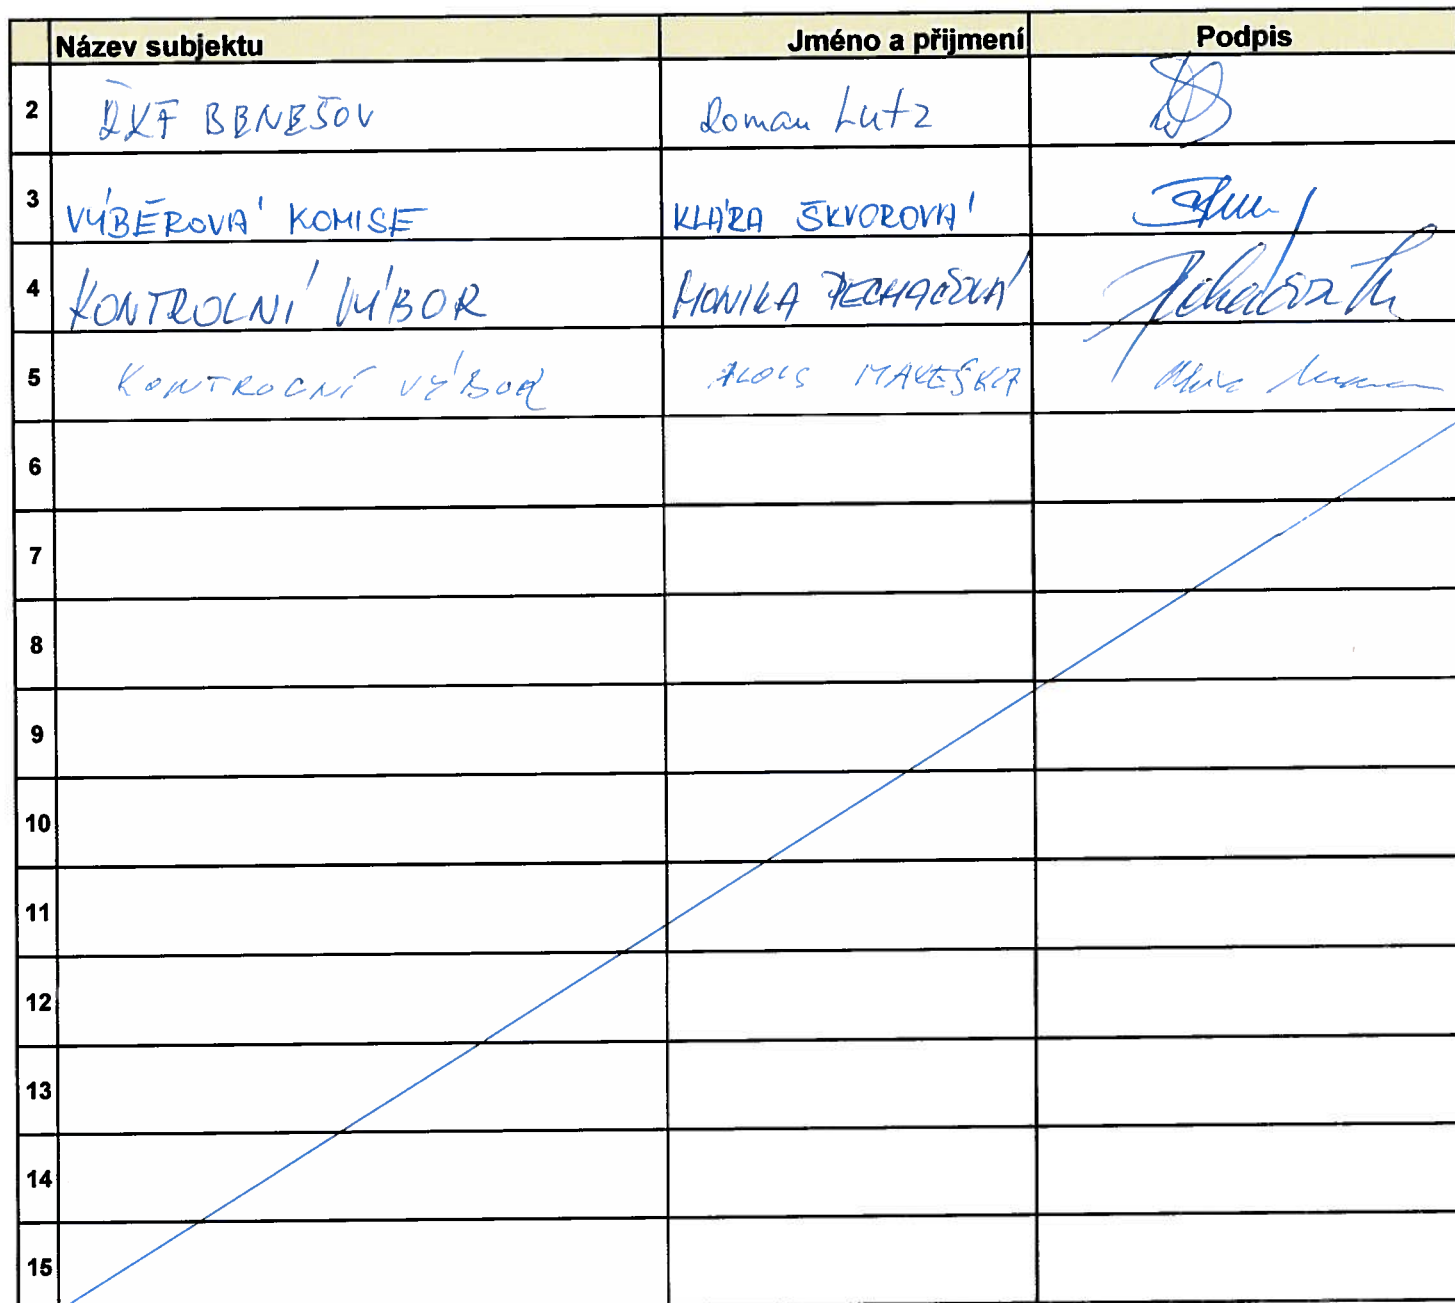 Název subjektu Jméno a přijmení Podpis
2 BENEŠOV Roman Lutz
3 VÝBĚROVÁ KOMISE KLÁRA ŠKVOROVÁ
4 KONTROLNÍ VÝBOR MONIKA PECHAČOVÁ
5 KONTROLNÍ VÝBOR ALOIS
6
7
8
9
10
11
12
13
14
15